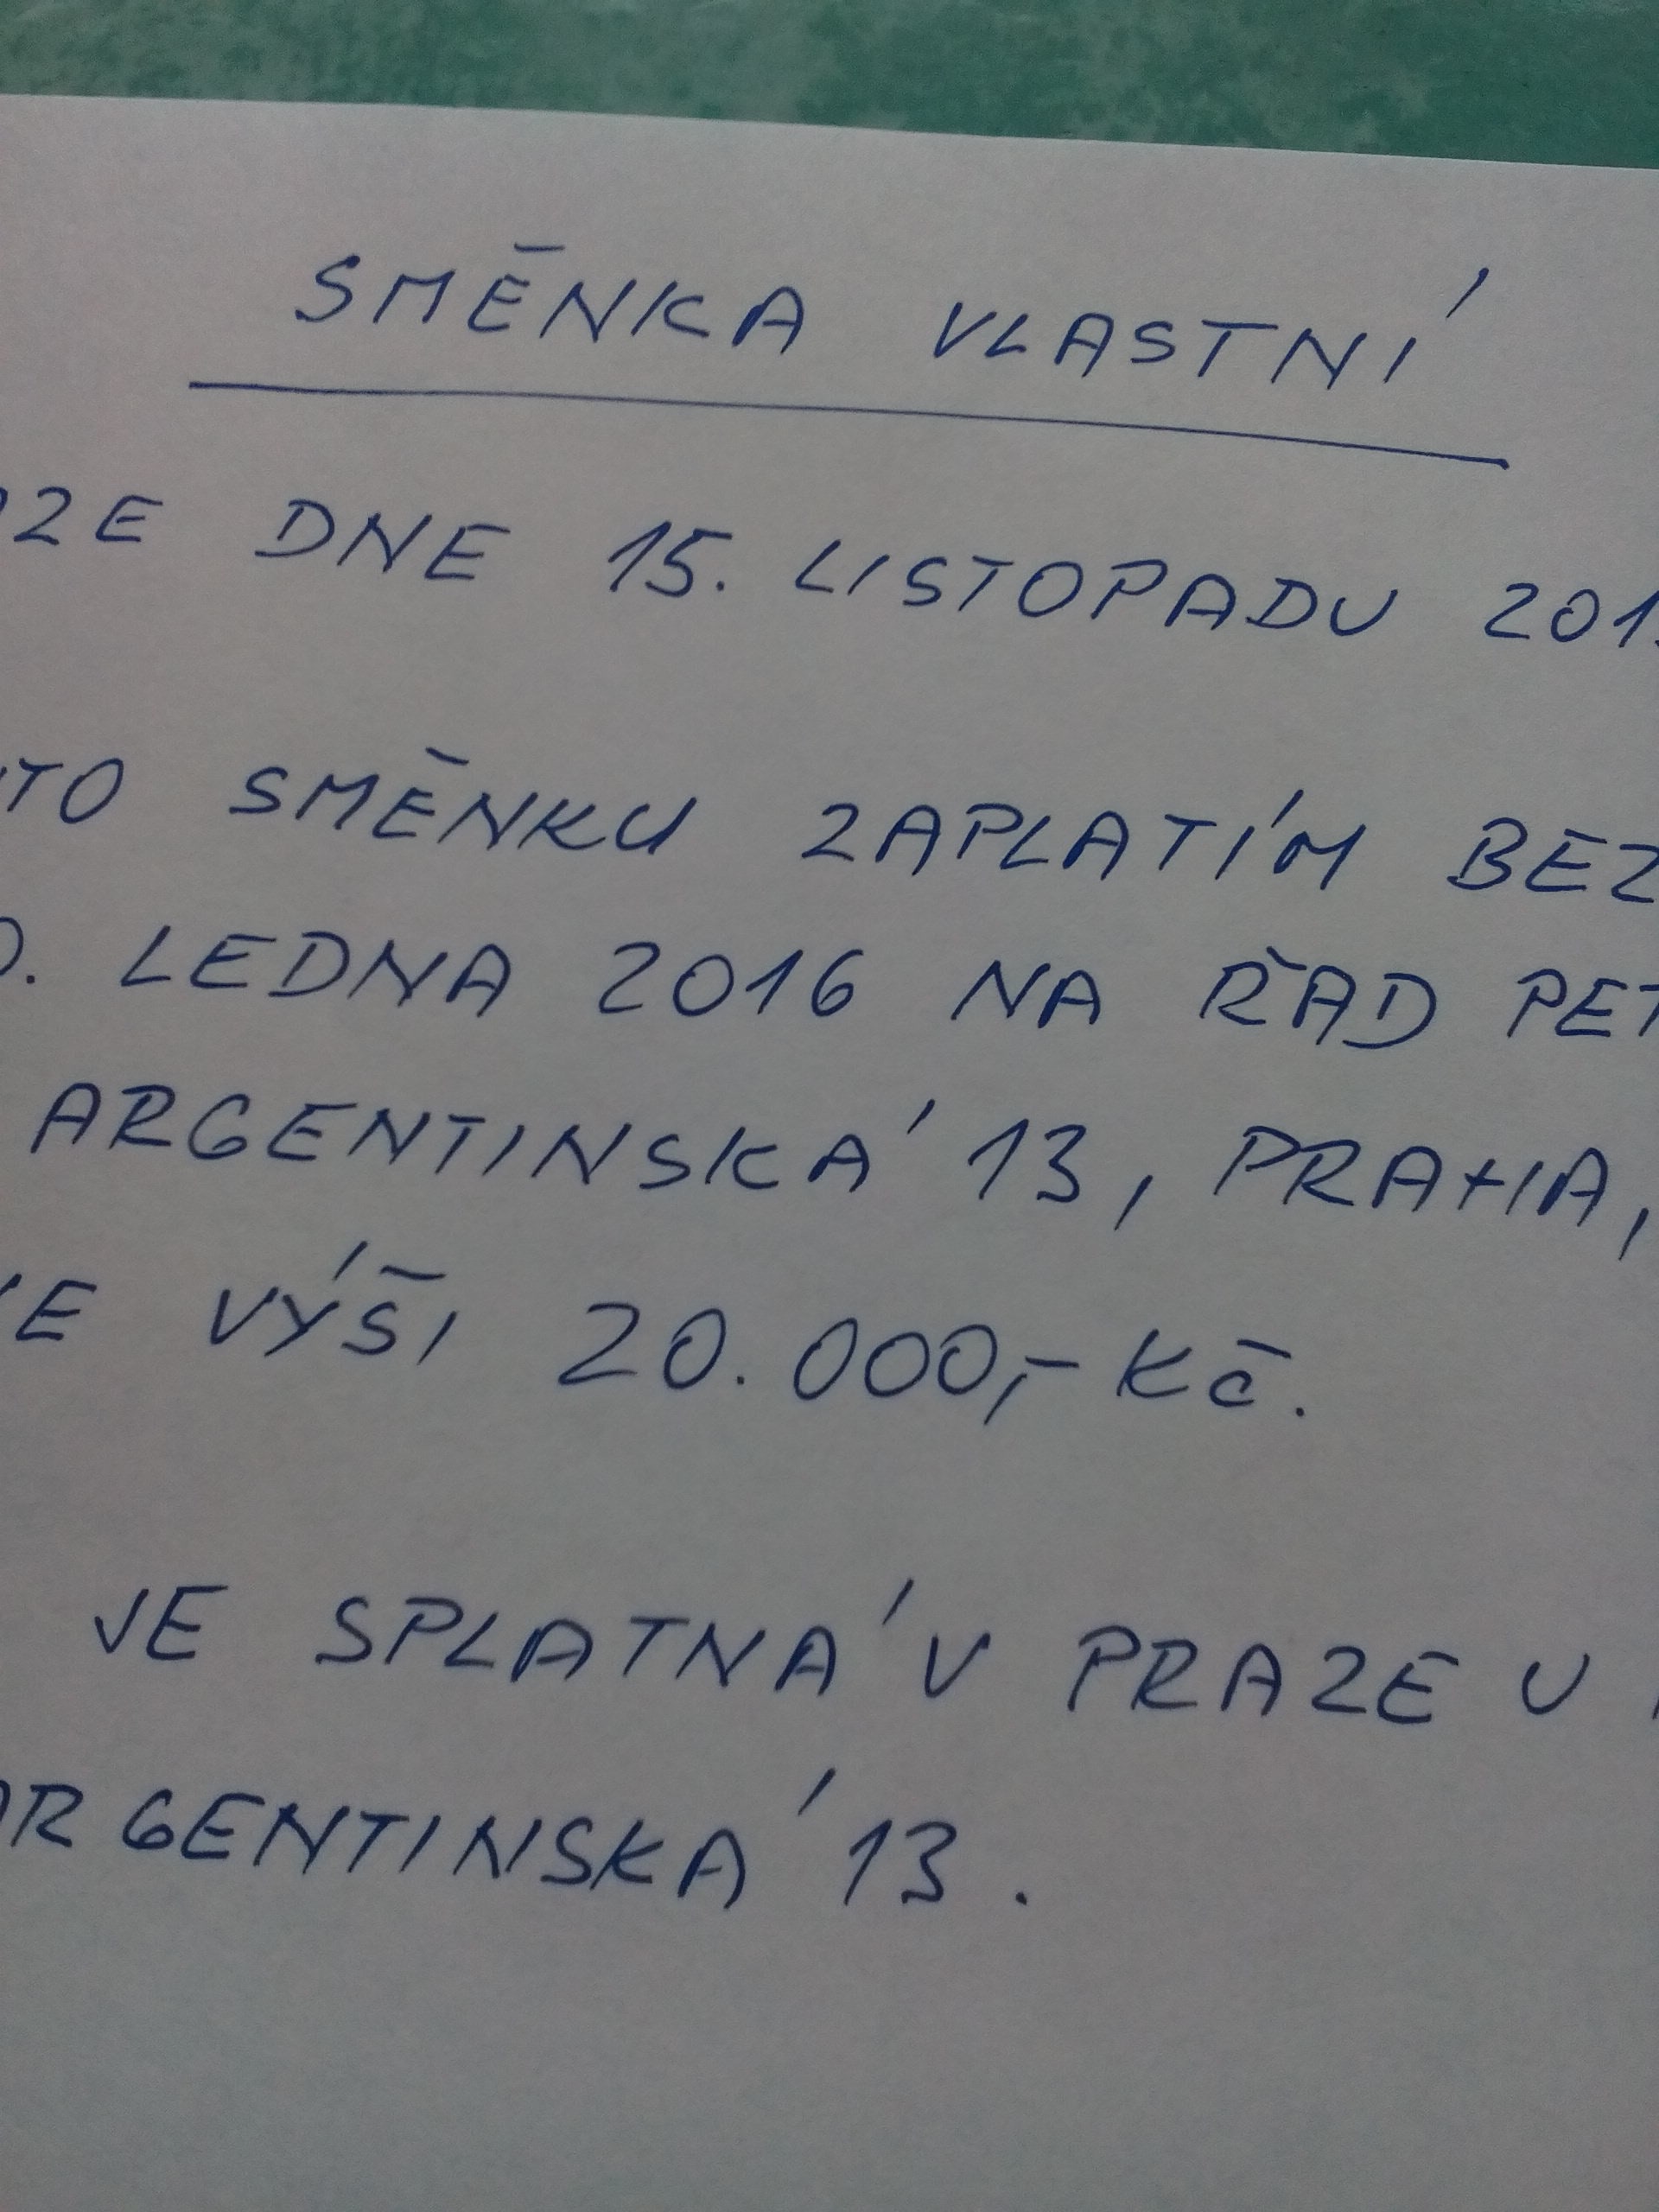 SMĚNKA VLASTNÍ
DNE 15. LISTOPADU
SMĚNKU ZAPLATÍM BEZ
LEDNA 2016 NA ŘAD
ARGENTINSKÁ 13, PRAHA,
VÝŠI 20.000,- Kč.
JE SPLATNÁ V PRAZE U
ARGENTINSKÁ 13.